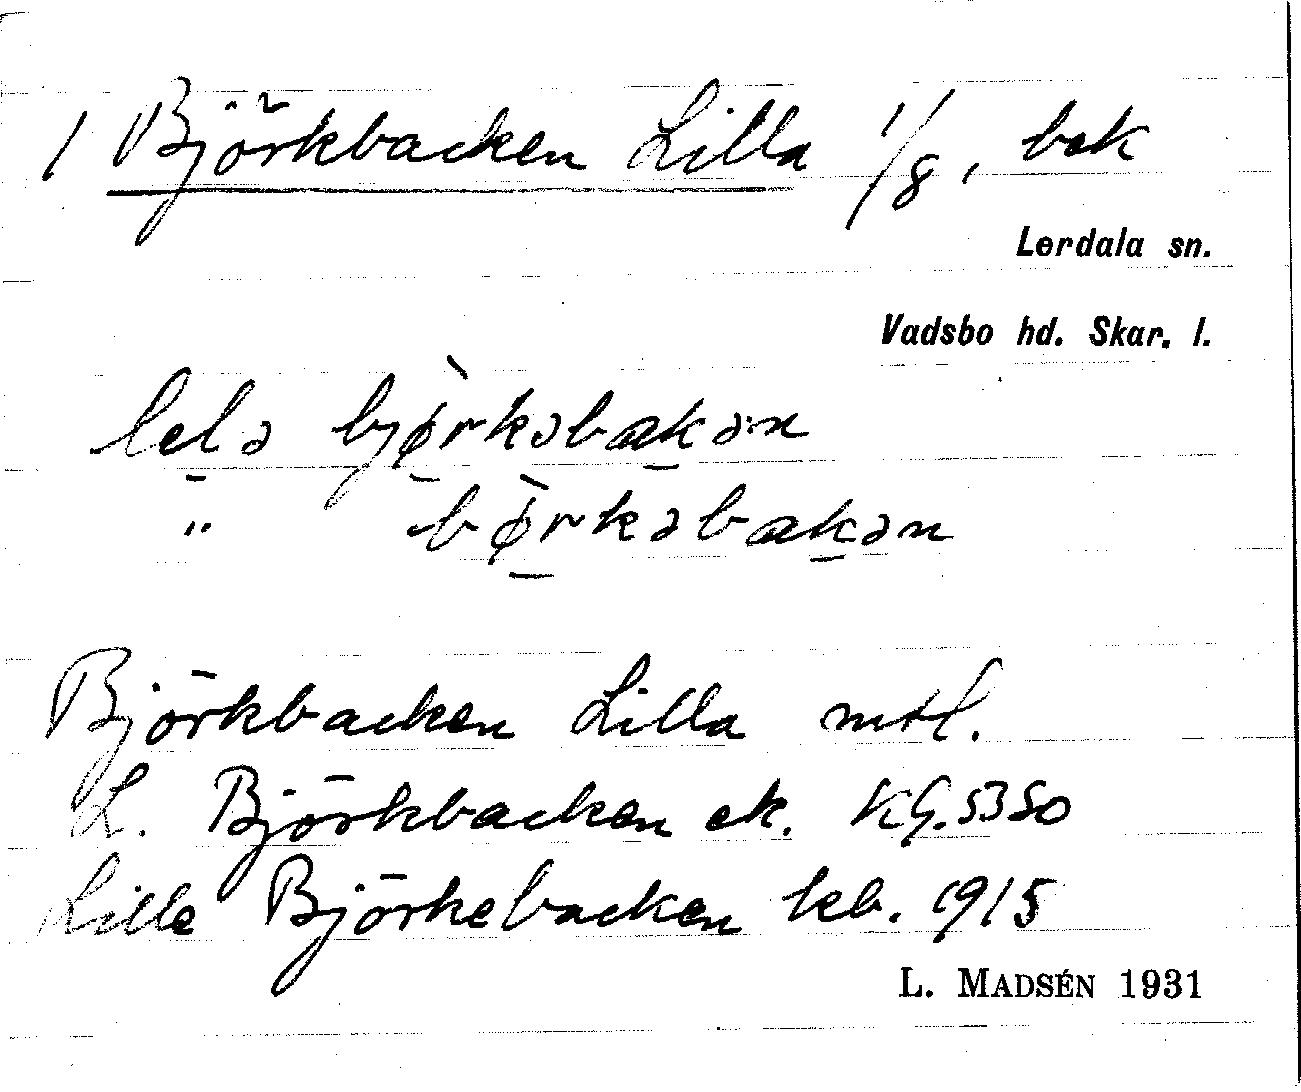 1 Björkbacken Lilla 1/8, bek
Lerdala sn.
Vadsbo hd. Skar. l.
lelə bjø̀rkəbakən
" bø̀rkəbakən
Björkbacken Lilla mtl.
L. Björkbacken ek. KG.5350
Lille Björkebacken kb. 1915
L. MADSÉN 1931